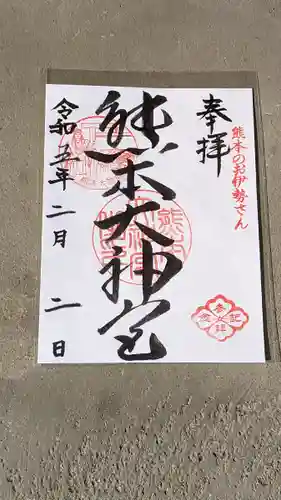 奉拝
熊本のお伊勢さん
熊本大神宮
令和五年二月二日
参拝記念